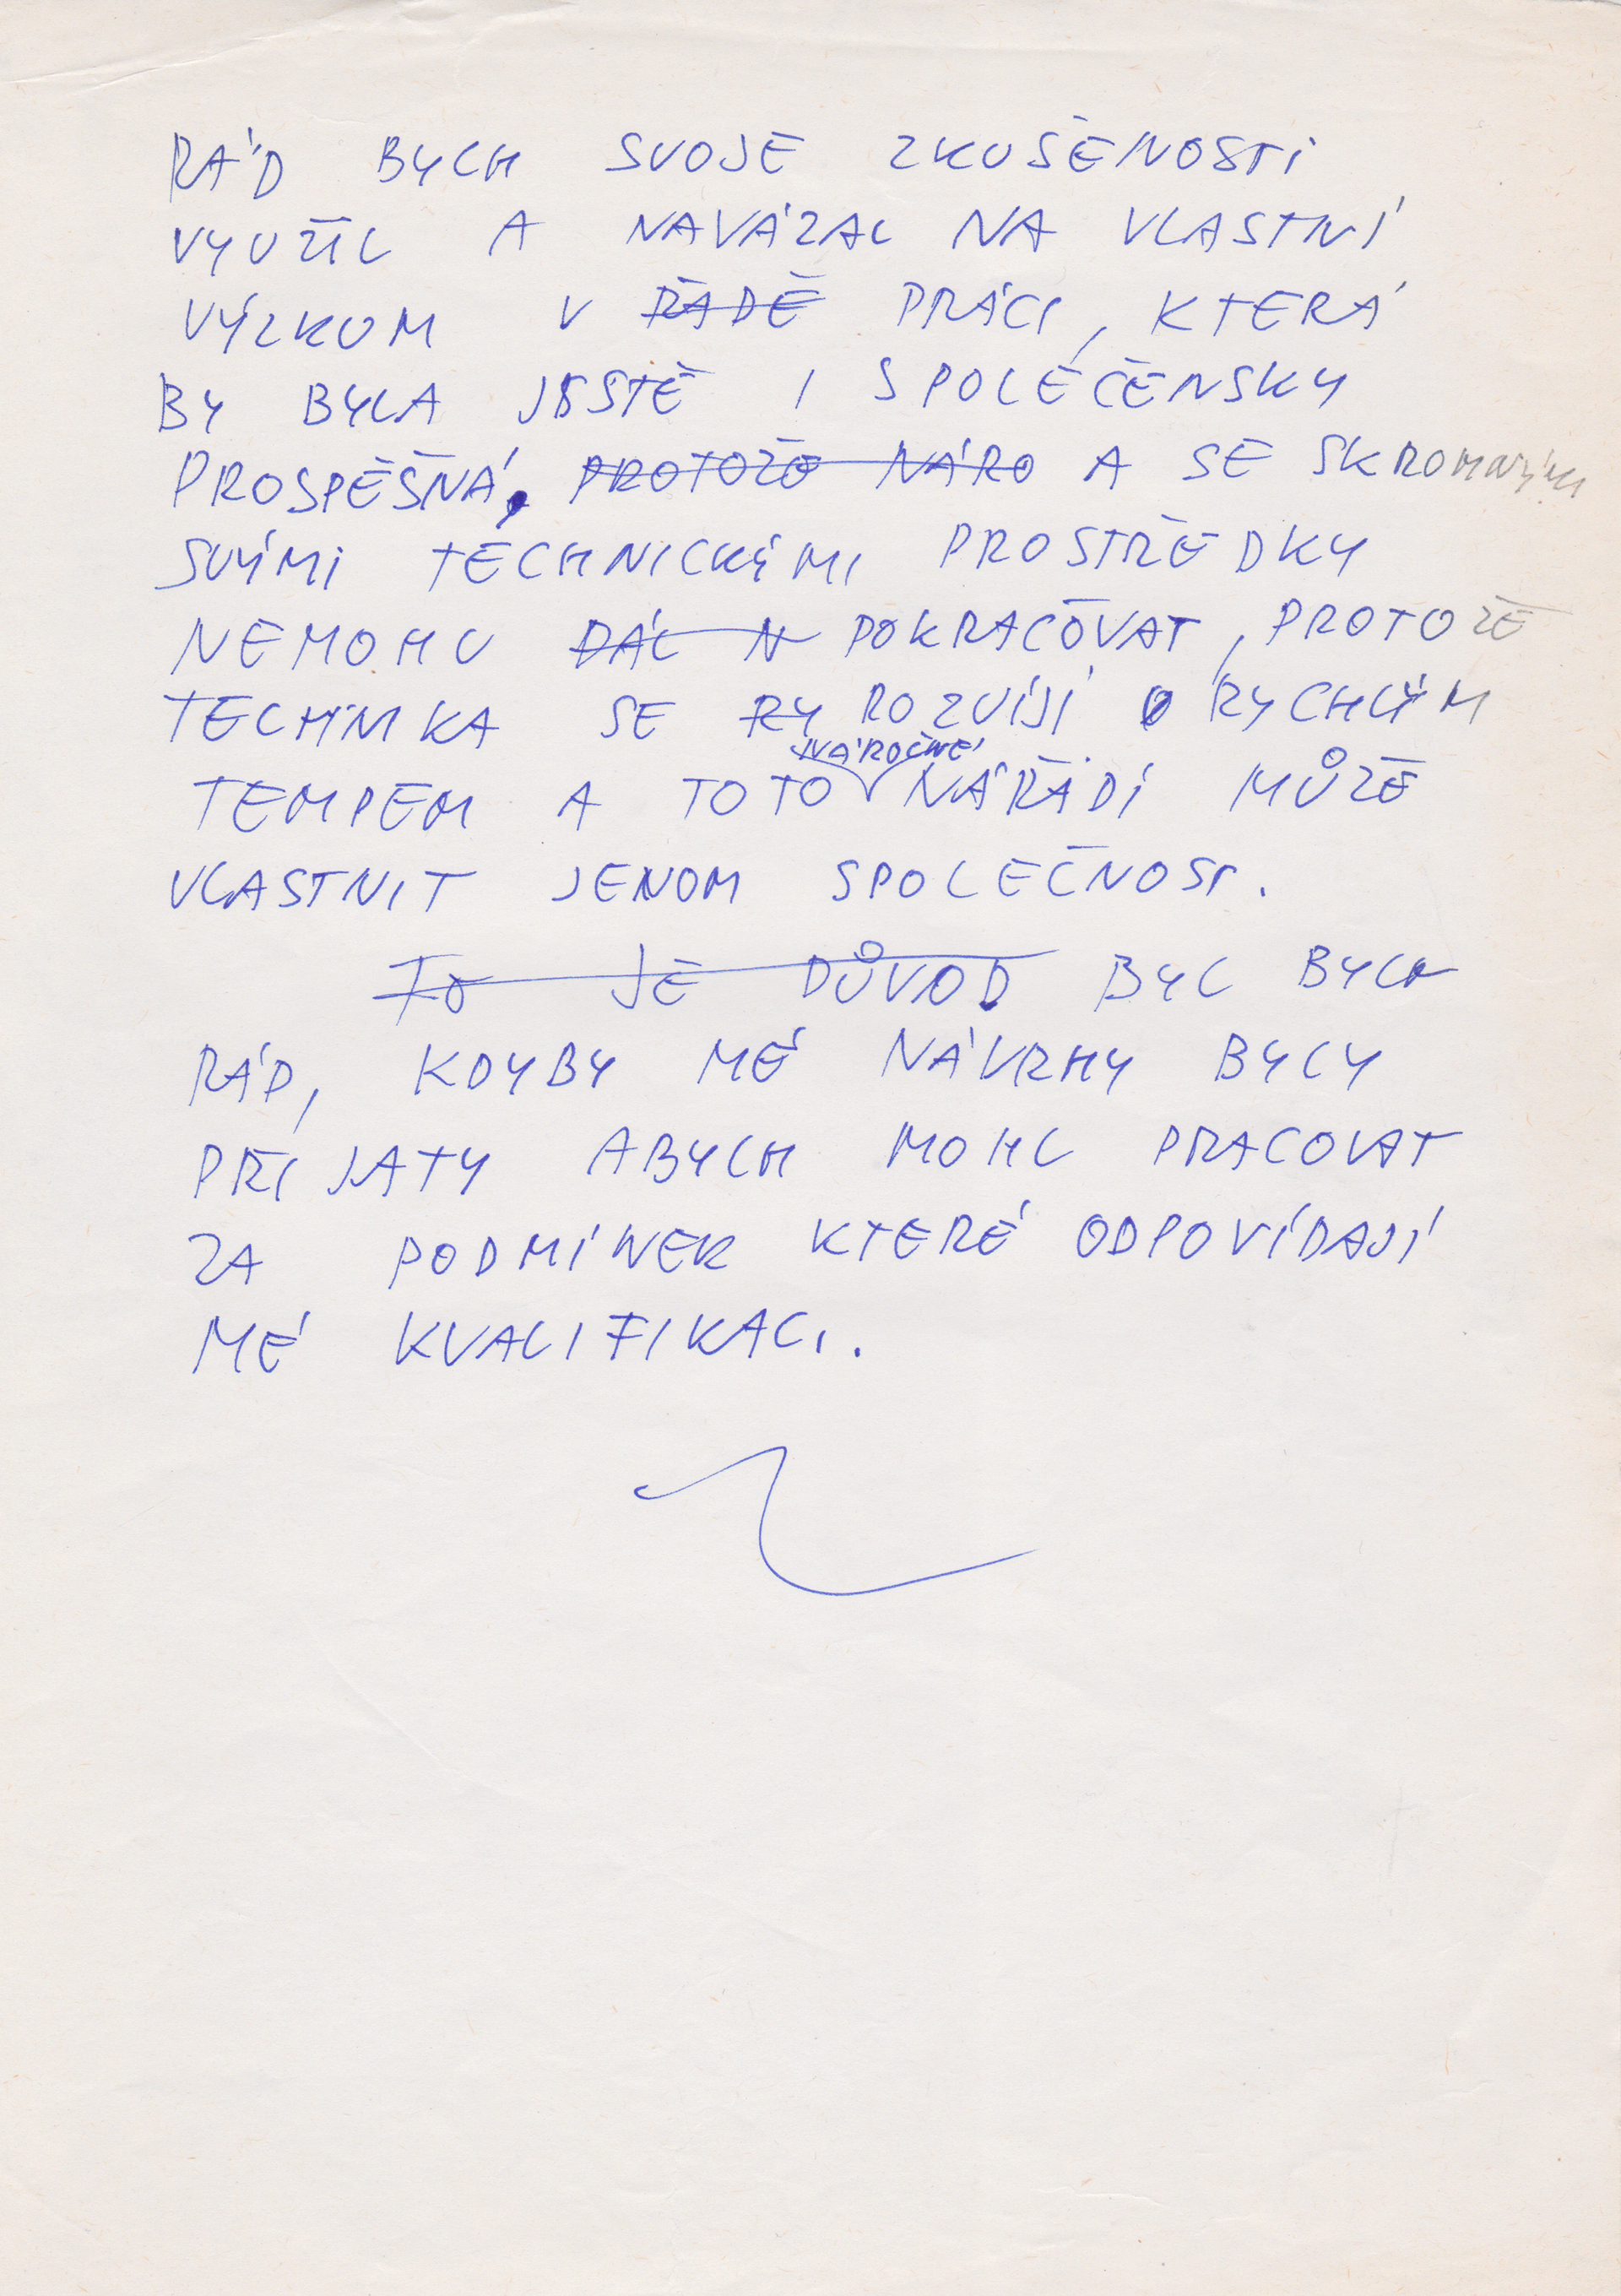 RÁD BYCH SVOJE ZKUŠENOSTI
VYUŽÍL A NAVÁZAL NA VLASTNÍ
VÝZKUM V ŘADĚ PRÁCI, KTERÁ
BY BYLA JEŠTĚ I SPOLEČENSKY
PROSPĚŠNÁ, PROTOŽE NÁRO A SE SKROMNÝMI
SVÝMI TECHNICKÝMI PROSTŘEDKY
NEMOHU DÁL N POKRAČOVAT, PROTOŽE
TECHNIKA SE RY ROZVÍJÍ RYCHLÝM
TEMPEM A TOTO NÁROČNÉ NÁŘADÍ MŮŽE
VLASTNIT JENOM SPOLEČNOST.
TO JE DŮVOD BYL BYCH
RÁD, KDYBY MÉ NÁVRHY BYLY
PŘIJATY ABYCH MOHL PRACOVAT
ZA PODMÍNEK KTERÉ ODPOVÍDAJÍ
MÉ KVALIFIKACI.